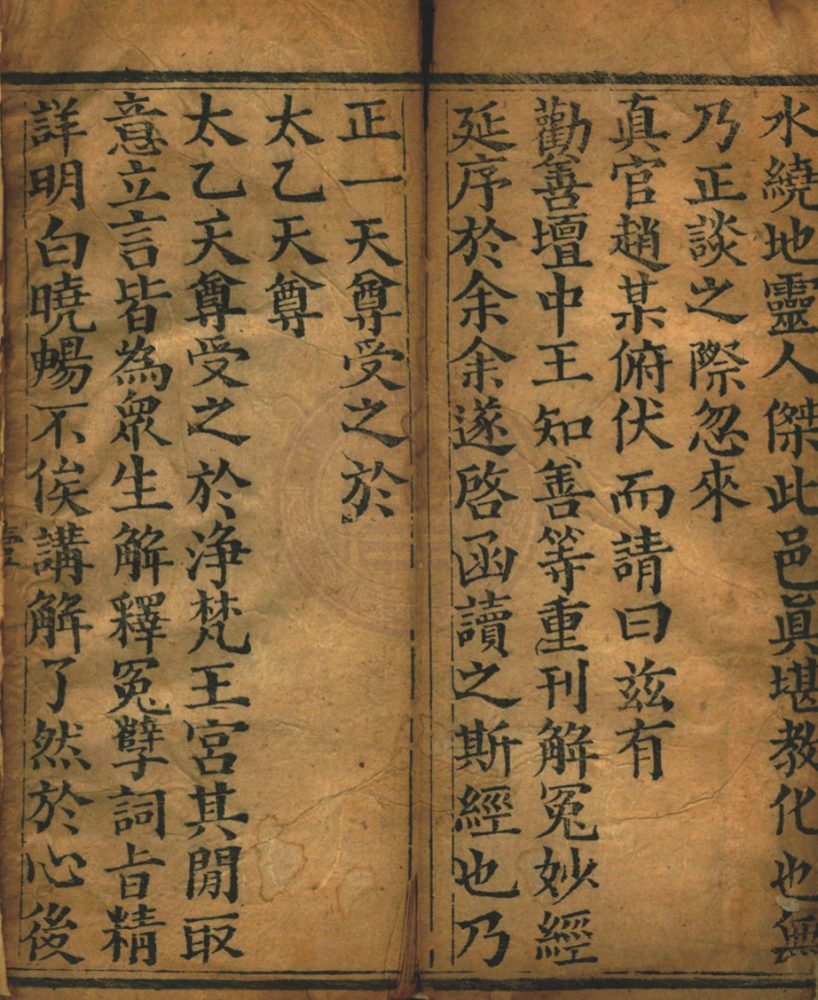 水繞地靈人傑此邑眞堪教化也無
乃正談之際忽來
真官趙某俯伏而請曰茲有
勸善壇中王知善等重刊解冤妙經
延序於余余遂啓函讀之斯經也乃
正一天尊受之於
太乙天尊
太乙天尊受之於浄梵王宮其閒取
意立言皆為衆生解釋冤孽詞旨精
詳明白曉暢不俟講解了然於心後